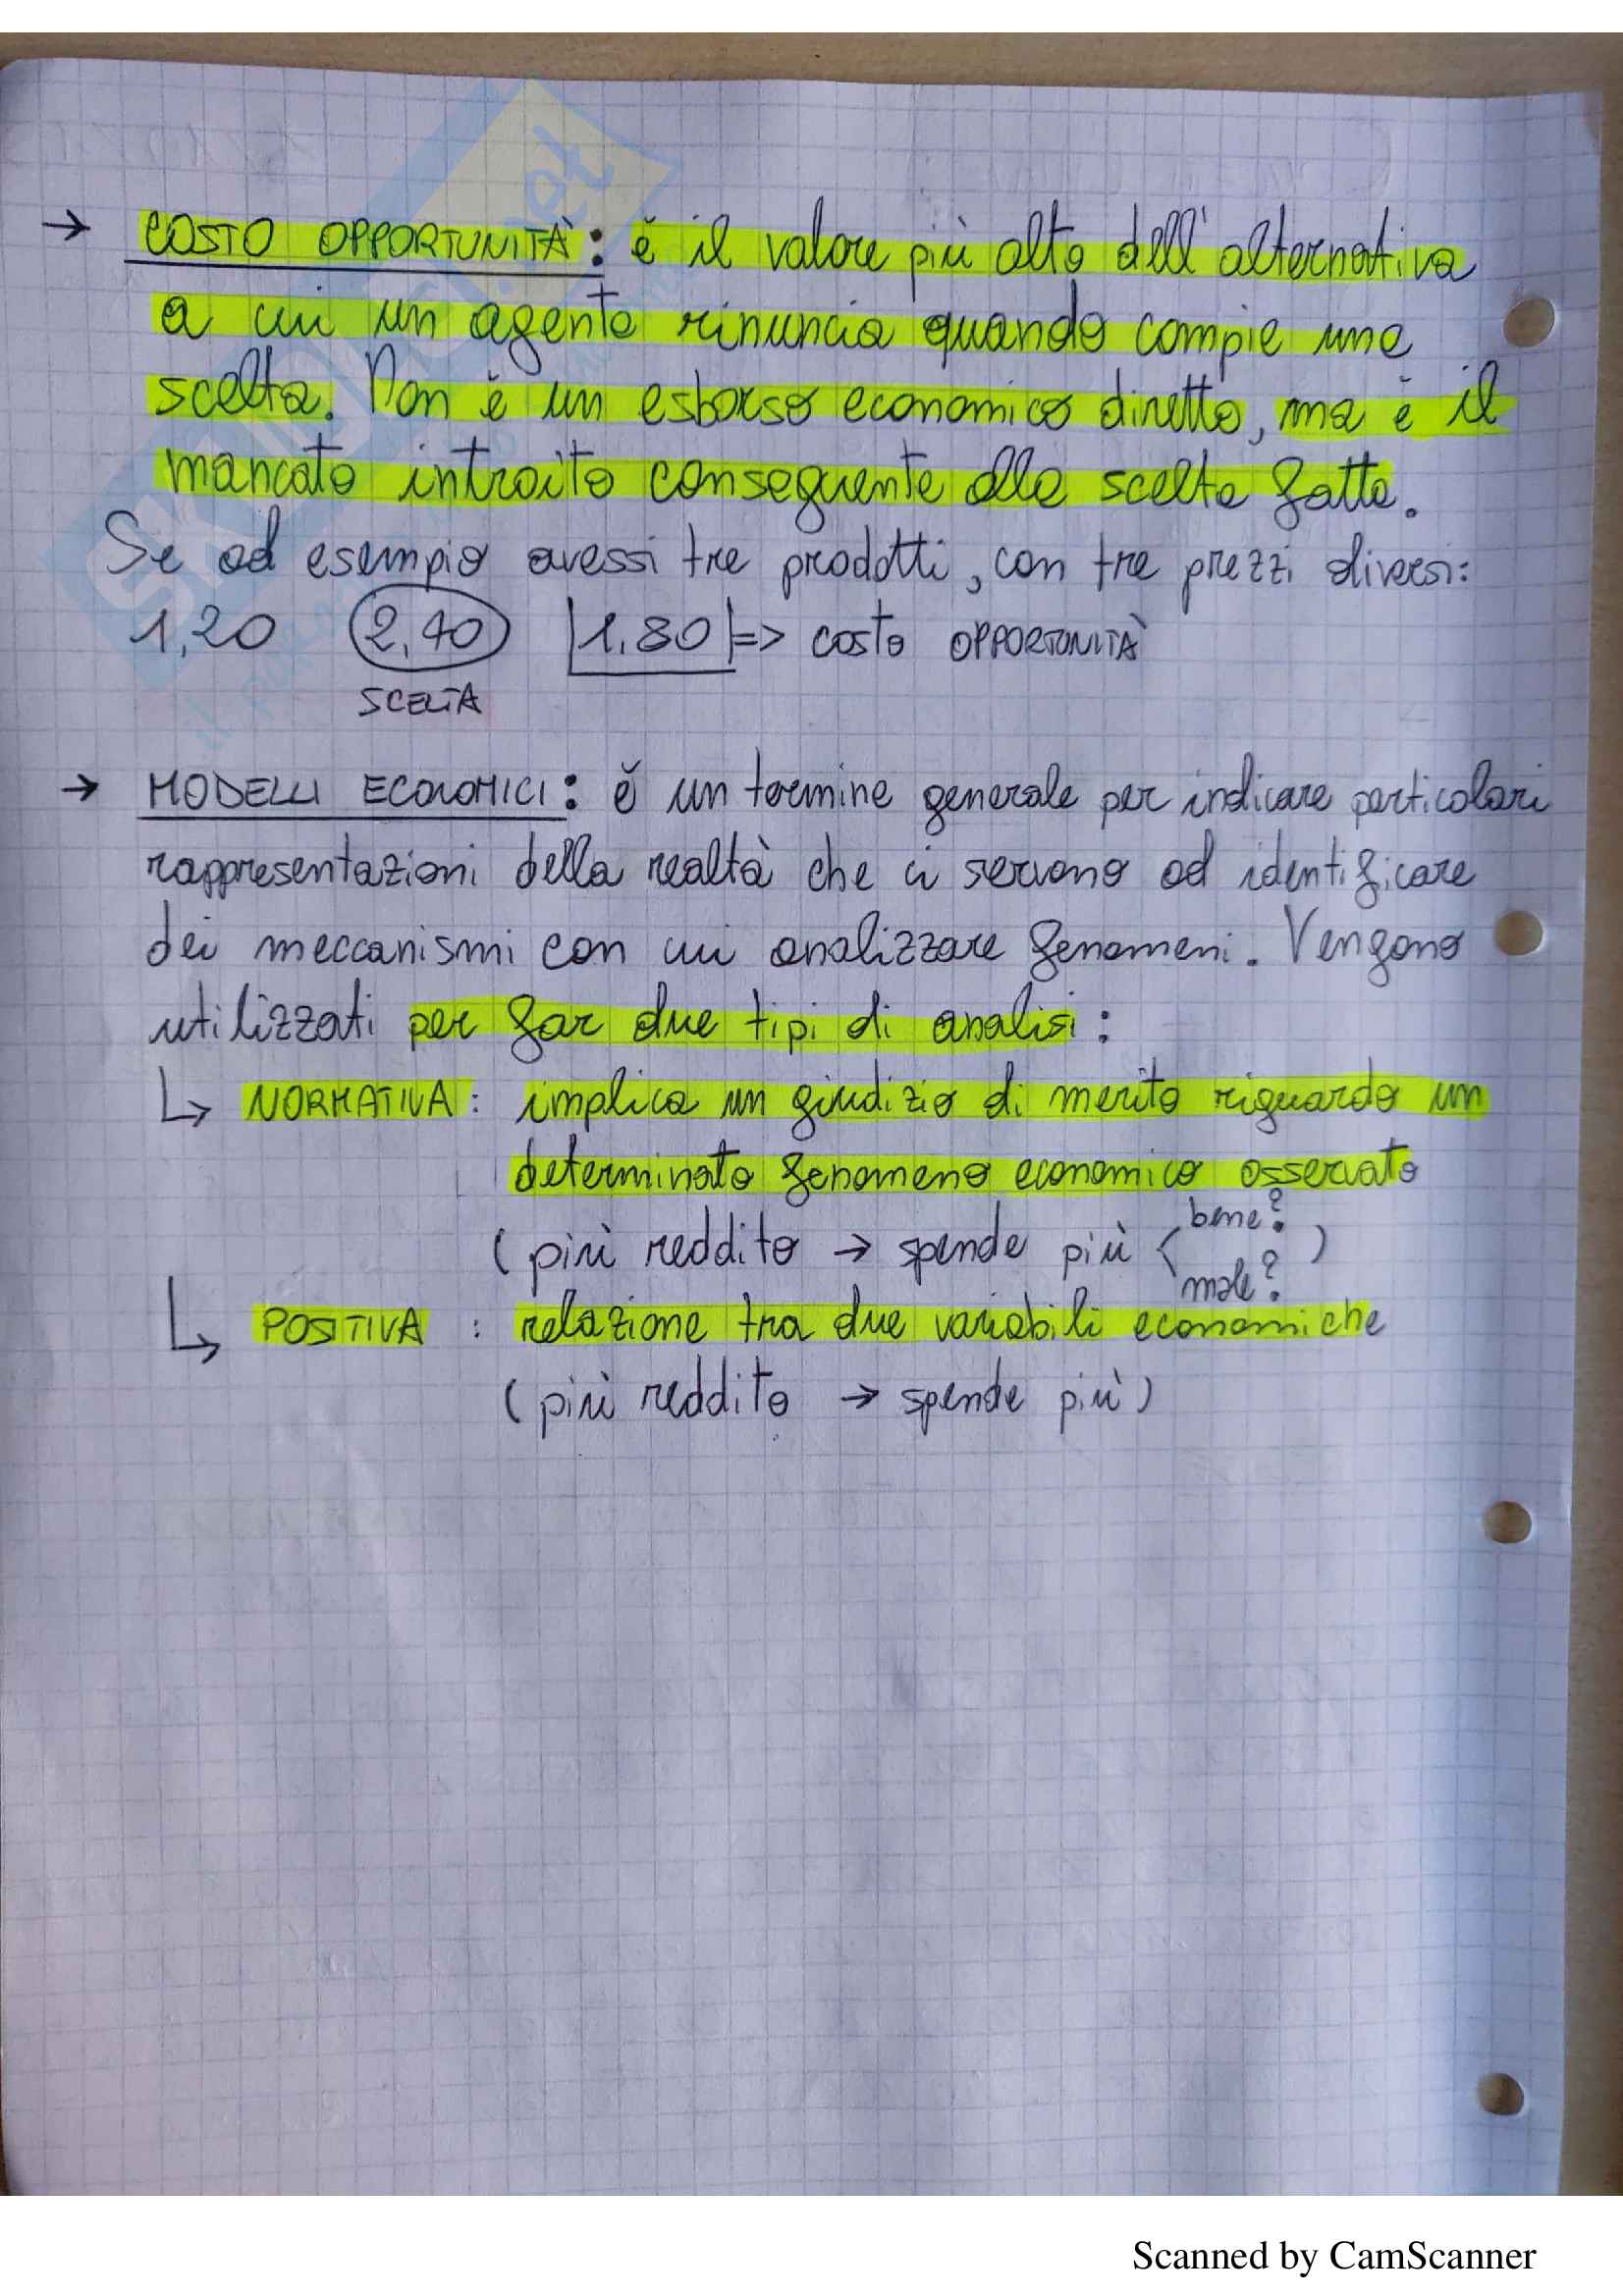 → COSTO OPPORTUNITÀ: è il valore più alto dell'alternativa
a cui un agente rinuncia quando compie una
scelta. Non è un esborso economico diretto, ma è il
mancato introito conseguente alla scelta fatta.
Se ad esempio avessi tre prodotti, con tre prezzi diversi:
1,20 2,40 1,80 => COSTO OPPORTUNITÀ
SCELTA
→ MODELLI ECONOMICI: è un termine generale per indicare particolari
rappresentazioni della realtà che ci servono ad identificare
dei meccanismi con cui analizzare fenomeni. Vengono
utilizzati per far due tipi di analisi:
↳ NORMATIVA: implica un giudizio di merito riguardo un
determinato fenomeno economico osservato
(più reddito → spende più < bene? male? )
↳ POSITIVA: relazione tra due variabili economiche
(più reddito → spende più)
SKUOLA.net
Scanned by CamScanner